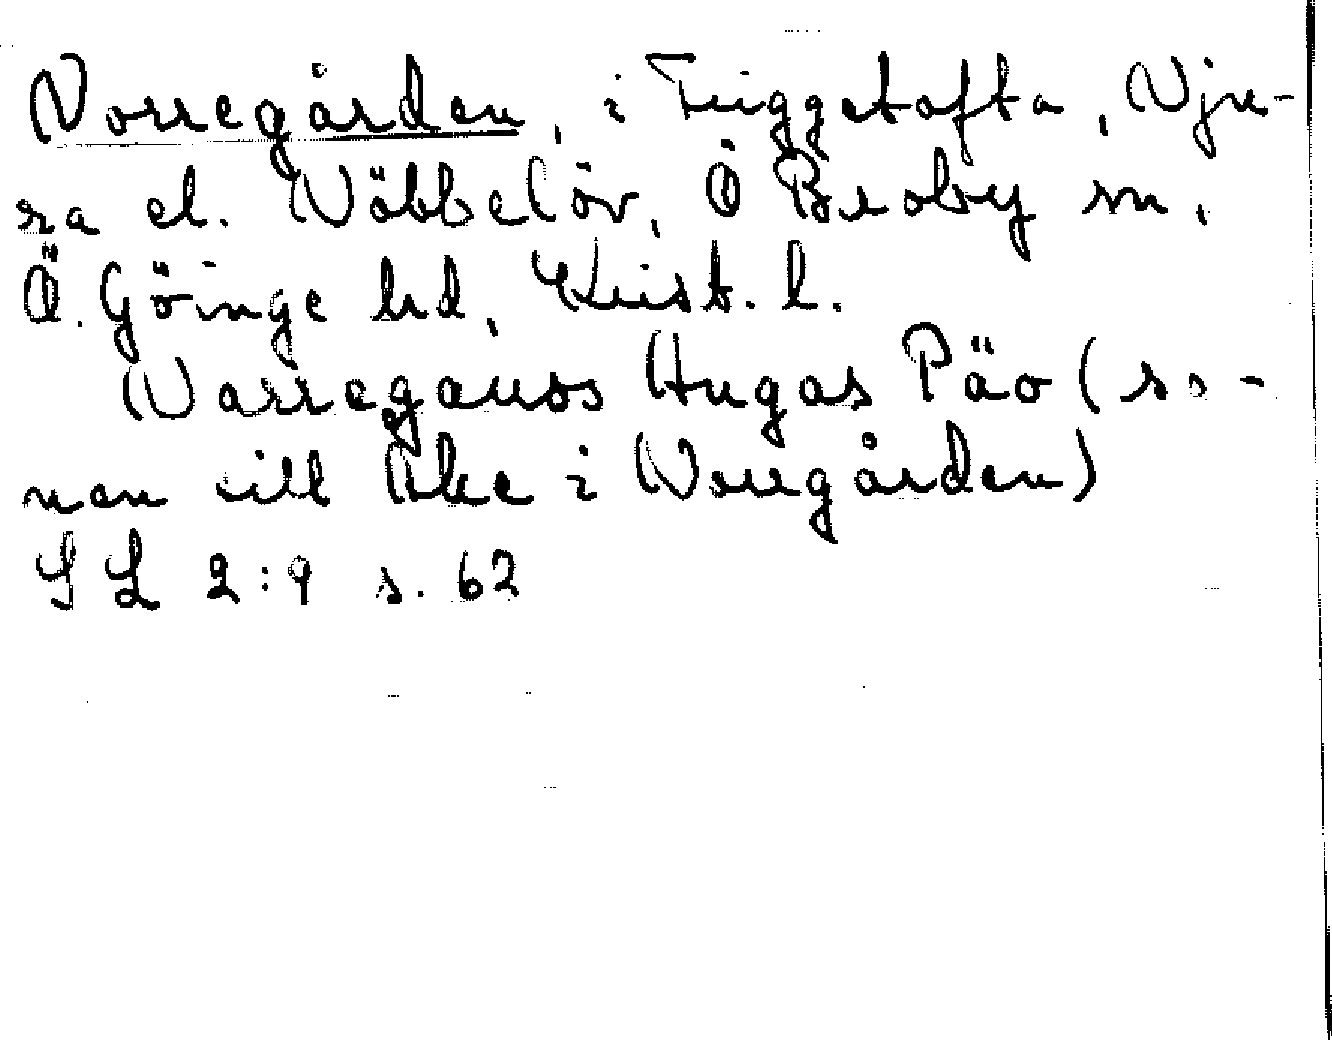 Norregården, i Triggetofta, Nju-
ra el. Nöbbelöv, Ö Broby sn,
Ö. Göinge hd, Krist. l.
Narregauss Hugas Päo (so-
nen till Åke i Norrgården)
SL 2:9 s. 62